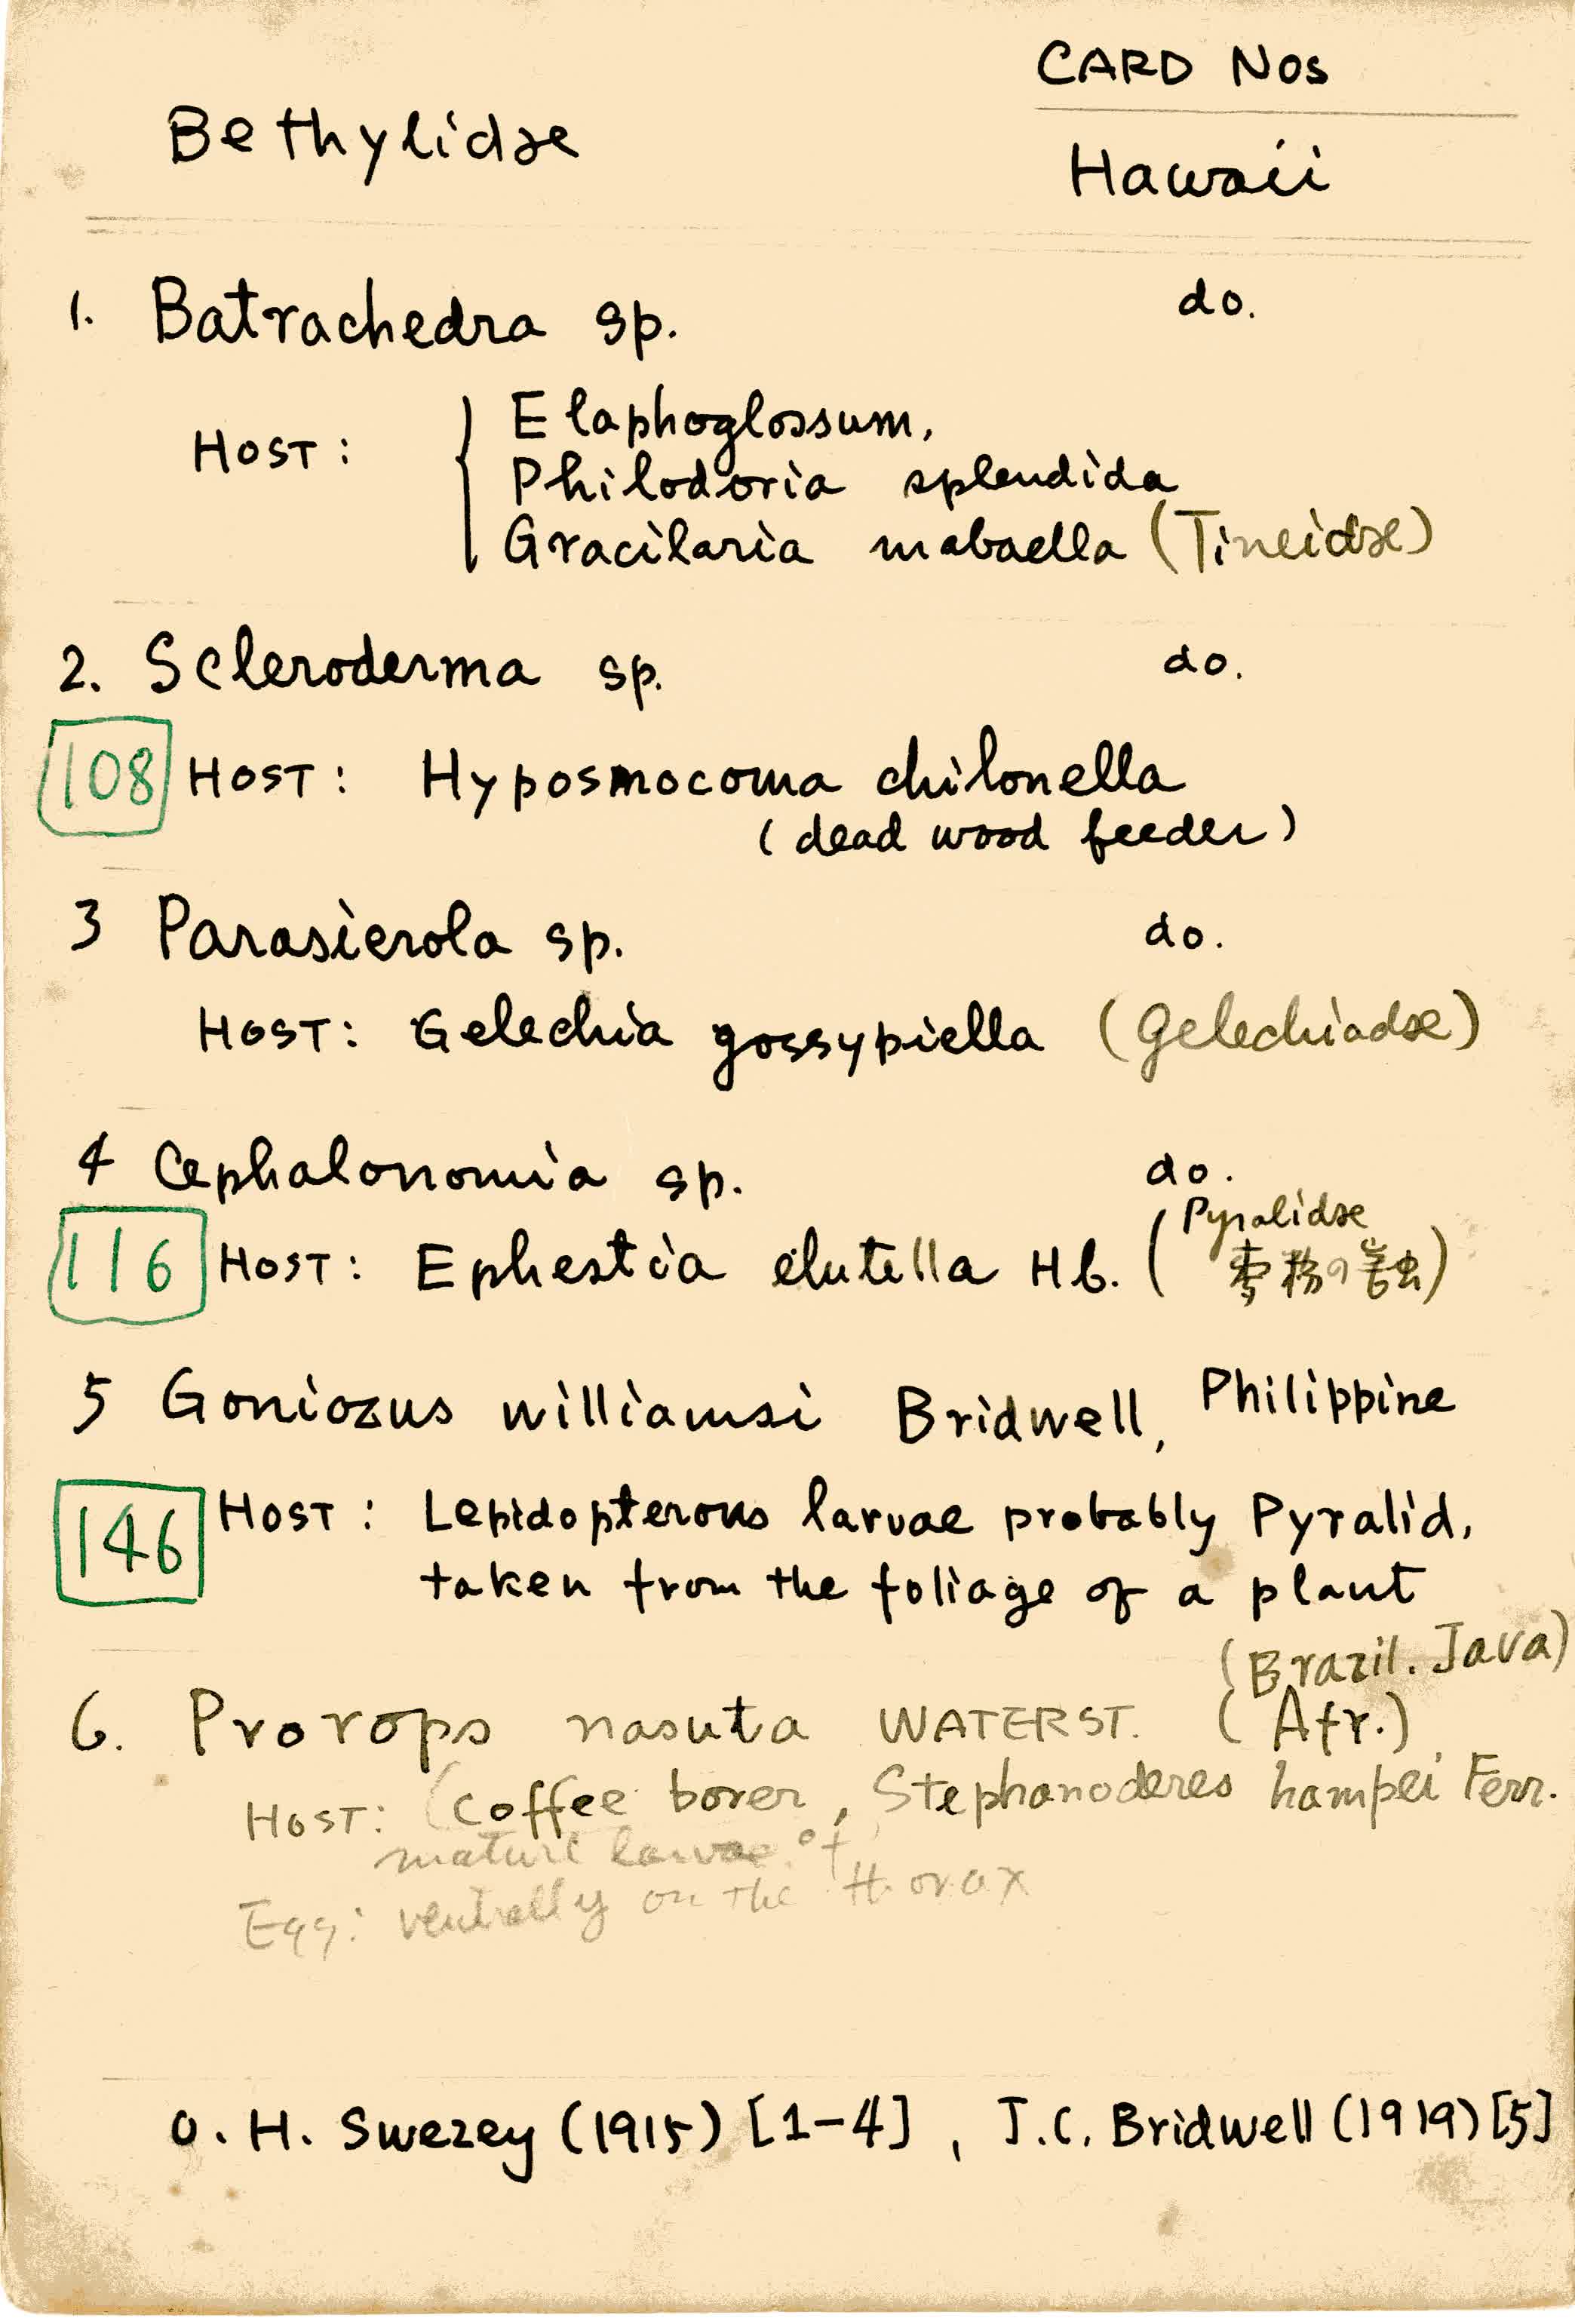 CARD Nos
Bethylidae
Hawaii
1. Batrachedra sp. do.
HOST: { Elaphoglossum,
Philodoria splendida
Gracilaria mabaella (Tineidae)
2. Scleroderma sp. do.
108 HOST: Hyposmocoma chilonella
(dead wood feeder)
3 Parasierola sp. do.
HOST: Gelechia gossypiella (Gelechiadae)
4 Cephalonomia sp. do.
116 HOST: Ephestia elutella Hb. (Pyralidae
の害虫)
5 Goniozus williamsi Bridwell, Philippine
146 HOST: Lepidopterous larvae probably Pyralid,
taken from the foliage of a plant
(Brazil. Java)
6. Prorops nasuta WATERST. (Afr.)
HOST: (Coffee borer, Stephanoderes hampei Ferr.
mature larvae of
Egg: ventrally on the thorax
O. H. Swezey (1915) [1-4], J.C. Bridwell (1919) [5]